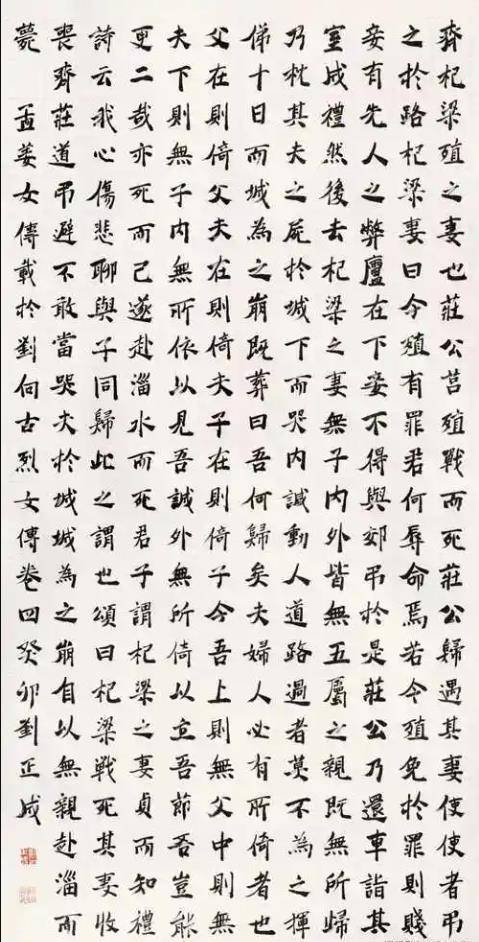 齊杞梁殖之妻也莊公莒殖戰而死莊公歸遇其妻使使者弔
之於路杞梁妻曰今殖有罪君何辱命焉若今殖免於罪則賤
妾有先人之弊廬在下妾不得與郊弔於是莊公乃還車詣其
室成禮然後去杞梁之妻無子內外皆無五屬之親既無所歸
乃枕其夫之屍於城下而哭內誠動人道路過者莫不為之揮
涕十日而城為之崩既葬曰吾何歸矣夫婦人必有所倚者也
父在則倚父夫在則倚夫子在則倚子今吾上則無父中則無
夫下則無子內無所依以見吾誠外無所倚以立吾節吾豈能
更二哉亦死而已遂赴淄水而死君子謂杞梁之妻貞而知禮
詩云我心傷悲聊與子同歸此之謂也頌曰杞梁戰死其妻收
喪齊莊道弔避不敢當哭夫於城城為之崩自以無親赴淄而
薨 孟姜女傳載於劉向古烈女傳卷四癸卯劉正成